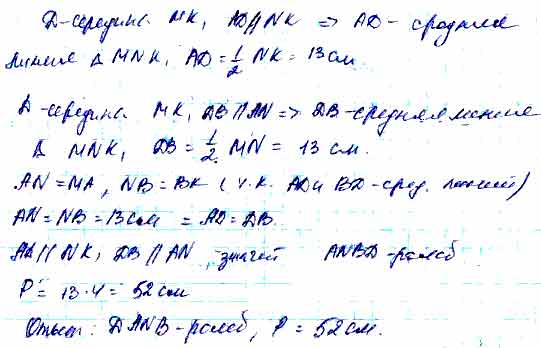 D-середина MK, AD∥NK ⇒ AD - средняя
линия Δ MNK, AD = 1/2 NK = 13 см
D-середина MK, DB∥AN ⇒ DB-средняя линия
Δ MNK, DB = 1/2 MN = 13 см.
AN = MA, NB = BK (т.к. AD и BD-сред. линии)
AN = NB = 13 см = AD = DB.
AD∥NK, DB∥AN, значит ANBD-ромб
P = 13·4 = 52 см
Ответ: DANB-ромб, P = 52 см.